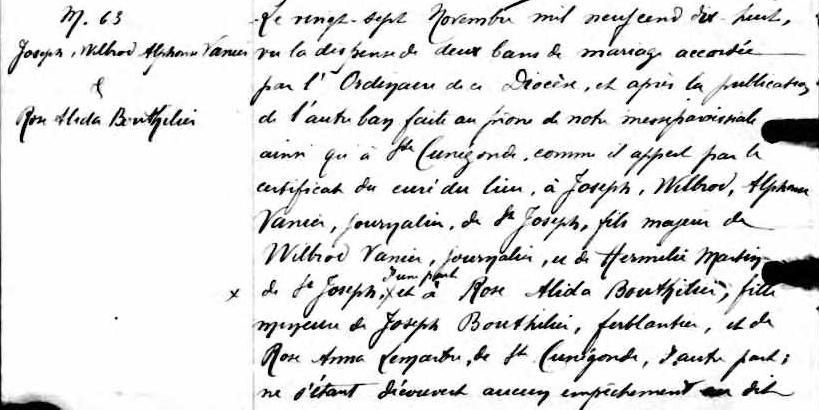 M. 63
Joseph, Wilbrod Alphonse Vanier
&
Rose Alida Bouthilier
Le vingt-sept Novembre mil neuf cend dix-huit,
vu la dispense de deux bans de mariage accordée
par l'Ordinaire de ce Diocèse, et après la publication
de l'autre ban faite au prône de notre messe paroissiale
ainsi qu'à Ste Cunégonde, comme il appert par le
certificat du curé du lieu, à Joseph, Wilbrod, Alphonse
Vanier, journalier, de St Joseph, fils majeur de
Wilbrod Vanier, journalier, et de Hermelie Martin
d'une part
x de St Joseph, x et à Rose Alida Bouthilier, fille
mineure de Joseph Bouthilier, ferblantier, et de
Rose Anna Lemaître, de St Cunégonde, d'autre part;
ne s'étant découvert aucun empêchement au dit